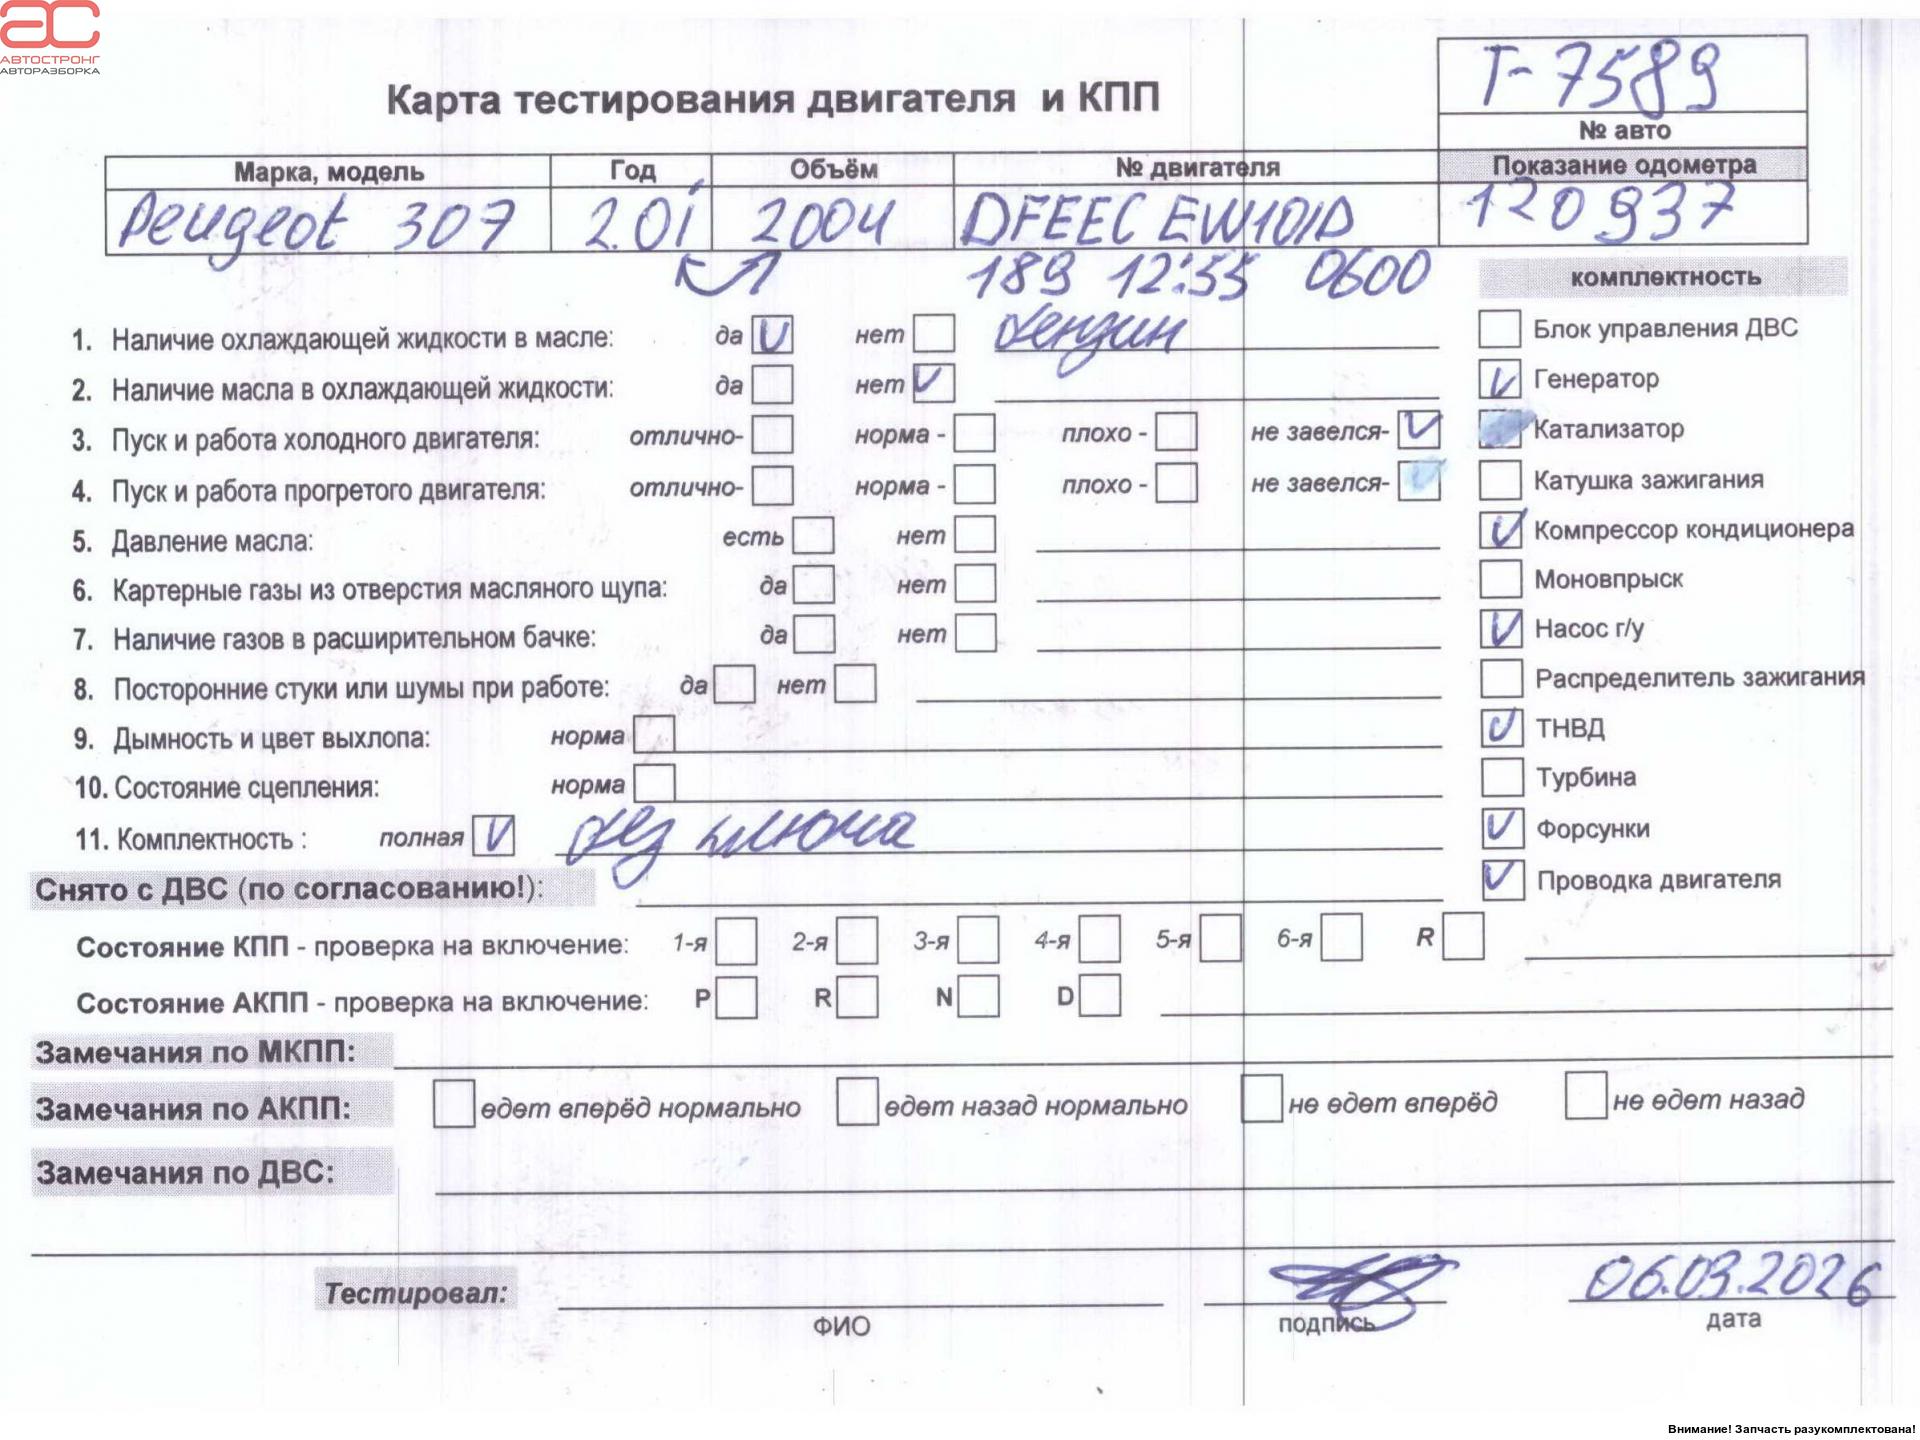 АС
АВТОСТРОНГ
АВТОРАЗБОРКА
Т-7589
№ авто
Карта тестирования двигателя и КПП
Марка, модель Год Объём № двигателя Показание одометра
Peugeot 307 2.0i 2004 DFEEC EW10/D 120937
189 12:55 0600
комплектность
1. Наличие охлаждающей жидкости в масле: да нет бензин
2. Наличие масла в охлаждающей жидкости: да нет
3. Пуск и работа холодного двигателя: отлично- норма - плохо - не завелся-
4. Пуск и работа прогретого двигателя: отлично- норма - плохо - не завелся-
5. Давление масла: есть нет
6. Картерные газы из отверстия масляного щупа: да нет
7. Наличие газов в расширительном бачке: да нет
8. Посторонние стуки или шумы при работе: да нет
9. Дымность и цвет выхлопа: норма
10. Состояние сцепления: норма
11. Комплектность : полная без ключа
Блок управления ДВС
Генератор
Катализатор
Катушка зажигания
Компрессор кондиционера
Моновпрыск
Насос г/у
Распределитель зажигания
ТНВД
Турбина
Форсунки
Проводка двигателя
Снято с ДВС (по согласованию!):
Состояние КПП - проверка на включение: 1-я 2-я 3-я 4-я 5-я 6-я R
Состояние АКПП - проверка на включение: P R N D
Замечания по МКПП:
Замечания по АКПП: едет вперёд нормально едет назад нормально не едет вперёд не едет назад
Замечания по ДВС:
Тестировал: 06.03.2026
ФИО подпись дата
Внимание! Запчасть разукомплектована!